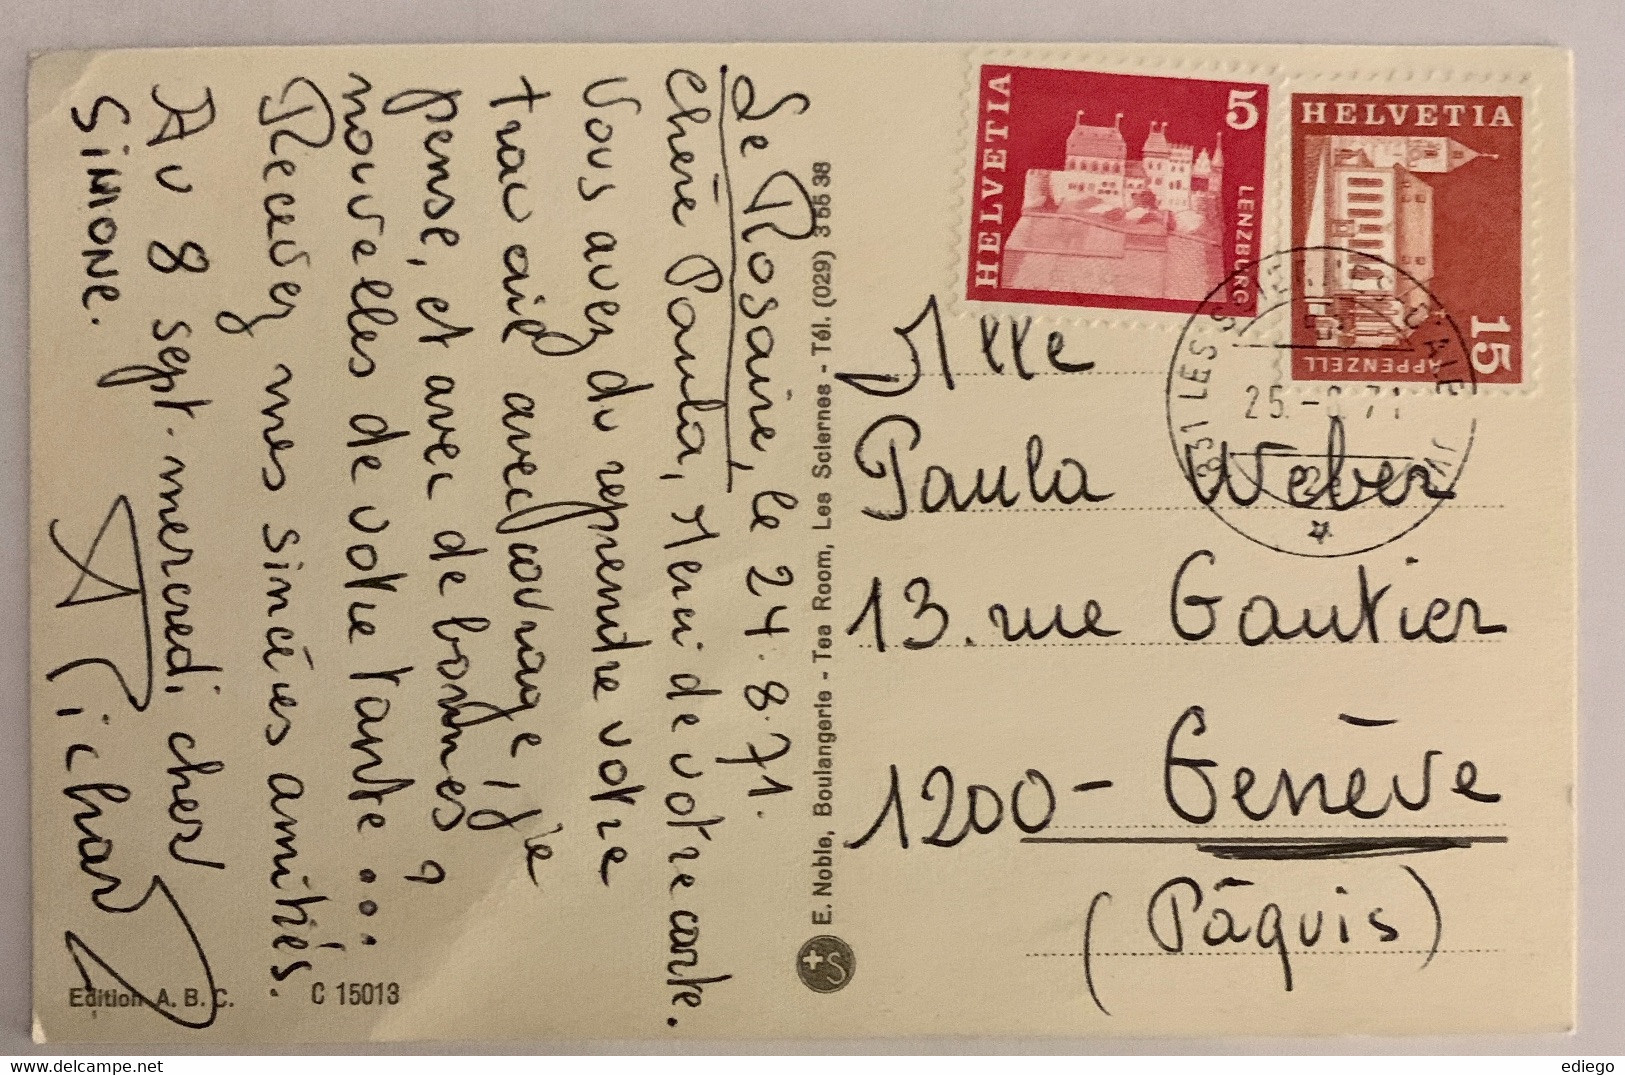 Le Rosaire, le 24.8.71.
Chère Paula, Merci de votre carte.
Vous avez dû reprendre votre
travail avec courage, j'e
pense, et avec de bonnes ?
nouvelles de votre tante ...
Recevez mes sincères amitiés.
Au 8 sept. mercredi chez
SIMONE.
A Pichard
Edition A. B. C.
C 15013
E. Noble, Boulangerie - Tea Room, Les Sciernes - Tél. (029) 3 55 38
HELVETIA
5
LENZBURG
HELVETIA
15
APPENZELL
LES SCIERNES D'ALB
25.-8.71
Mlle
Paula Weber
13. rue Gautier
1200 - Genève
(Pâquis)
edlego